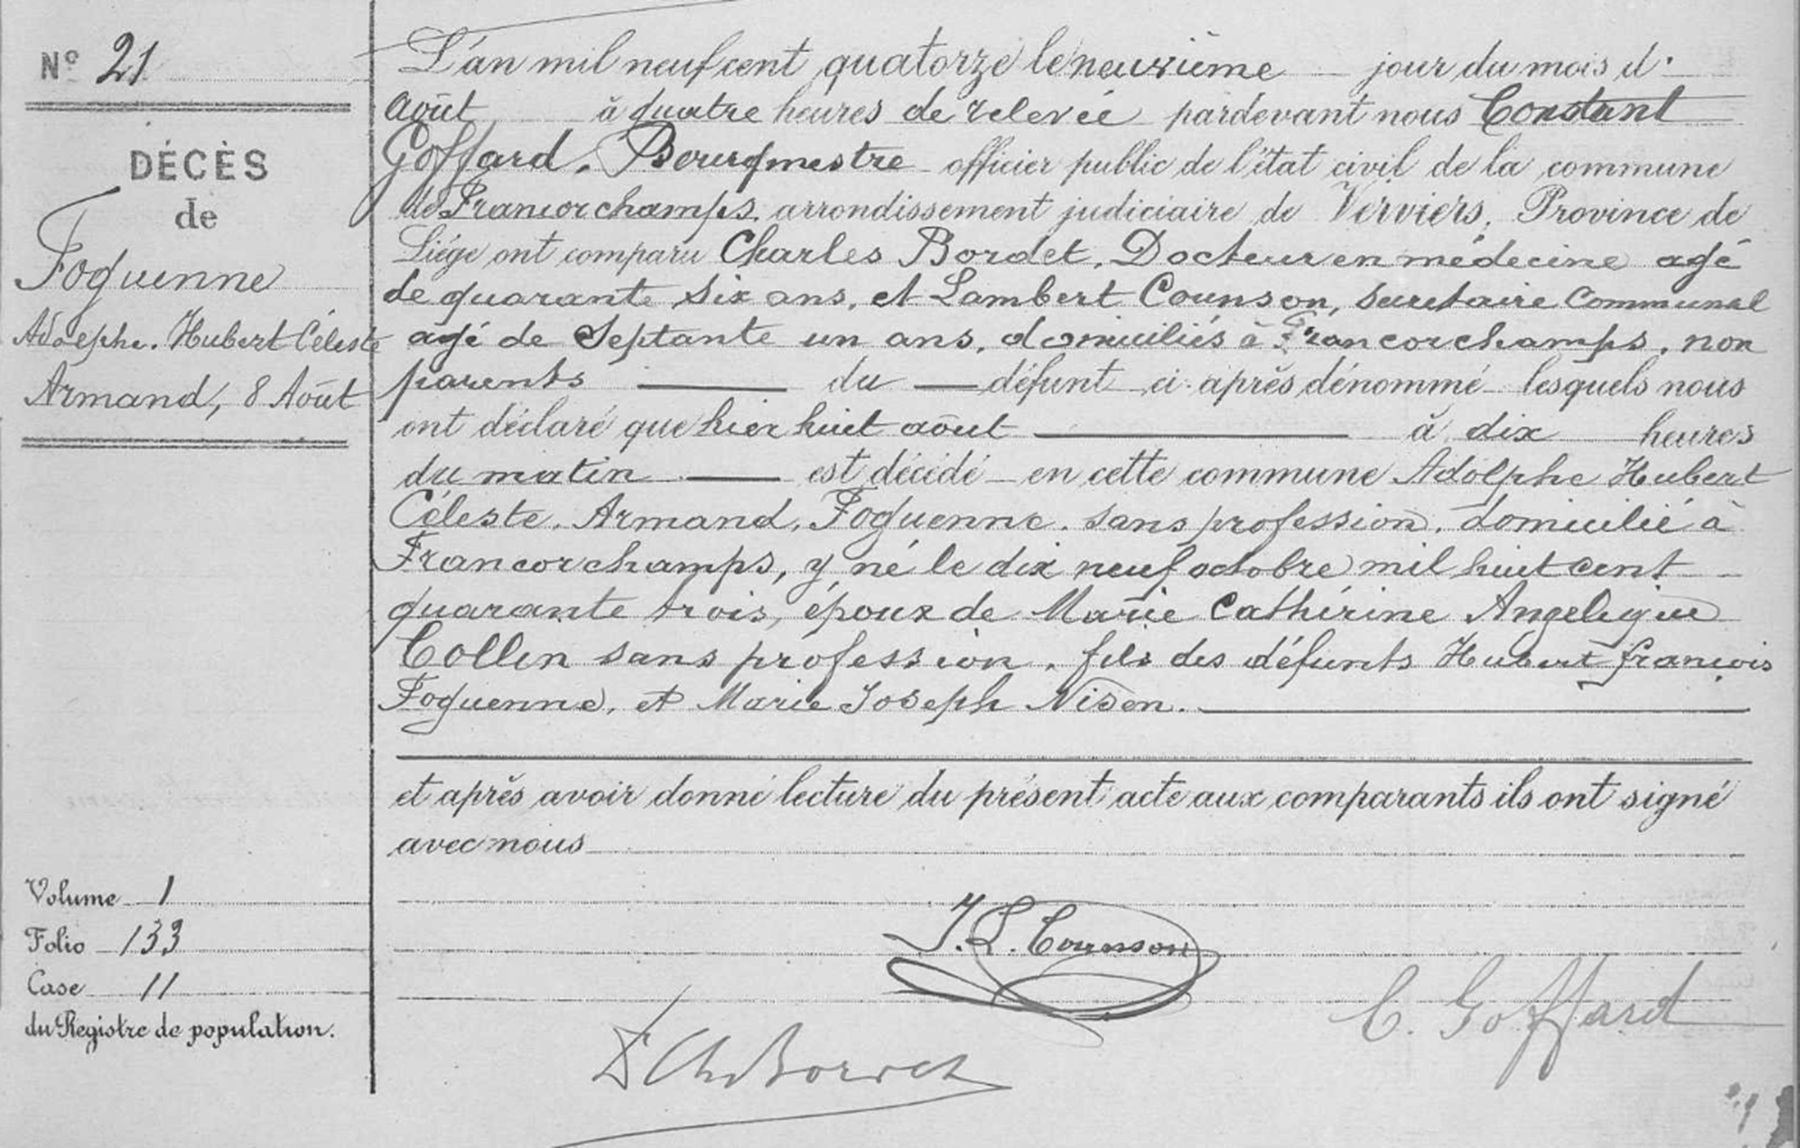 Nº 21
DÉCÈS
de
Foguenne
Adolphe. Hubert Céleste
Armand, 8 Août
L'an mil neuf cent quatorze le neuvième jour du mois d'
août à quatre heures de relevée pardevant nous Constant
Goffard, Bourgmestre officier public de l'état civil de la commune
de Francorchamps, arrondissement judiciaire de Verviers, Province de
Liége ont comparu Charles Bordet, Docteur en médecine agé
de quarante six ans, et Lambert Counson, secretaire communal
agé de septante un ans, domiciliés à Francorchamps, non
parents du défunt ci-après dénommé lesquels nous
ont déclaré que hier huit août à dix heures
du matin est décédé en cette commune Adolphe Hubert
Céleste. Armand, Foguenne. sans profession, domicilié à
Francorchamps, y né le dix neuf octobre mil huit cent
quarante trois, époux de Marie Cathérine Angelique
Collin sans profession. fils des défunts Hubert françois
Foguenne, et Marie Joseph Nisen.
et après avoir donné lecture du présent acte aux comparants ils ont signé
avec nous
Volume 1
Folio 133
Case 11
du Registre de population.
J. L. Counson
C. Goffard
Ch Bordet